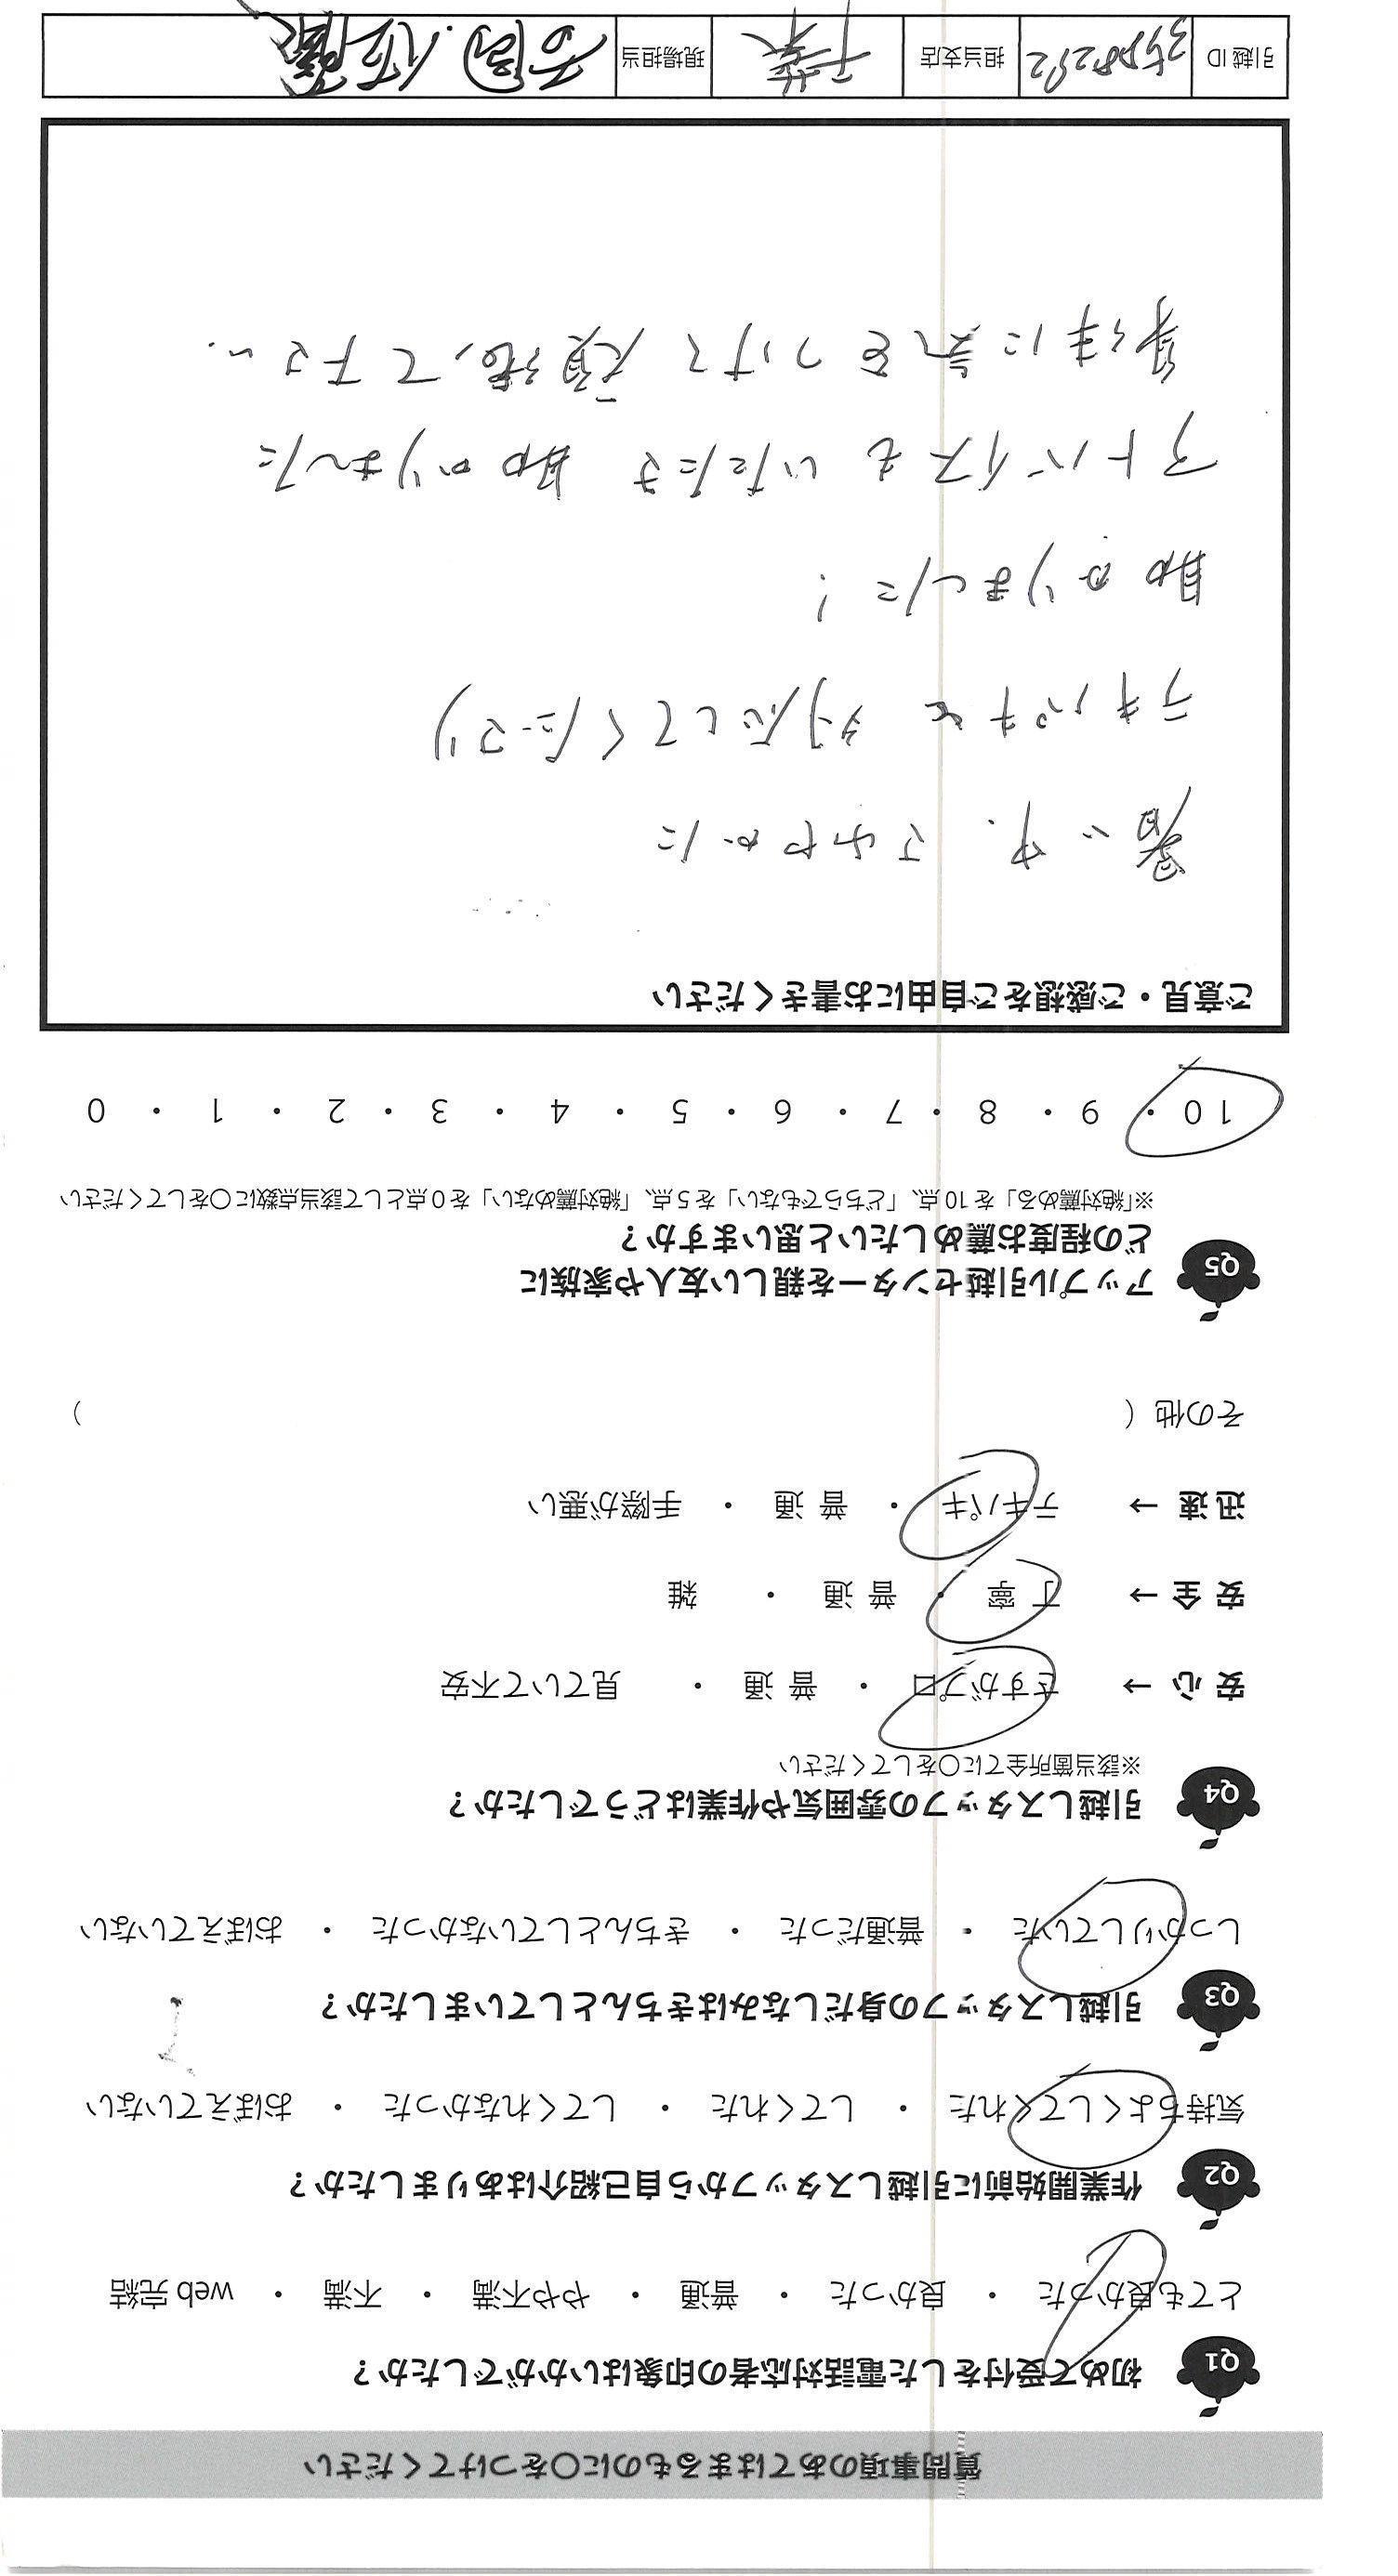 質問事項のあてはまるものに〇をつけてください
Q1 初めて受付をした電話対応者の印象はいかがでしたか？
とても良かった ・ 良かった ・ 普通 ・ やや不満 ・ 不満 ・ web 完結
Q2 作業開始前に引越しスタッフから自己紹介はありましたか？
気持ちよくしてくれた ・ してくれた ・ してくれなかった ・ おぼえていない
Q3 引越しスタッフの身だしなみはきちんとしていましたか？
しっかりしていた ・ 普通だった ・ きちんとしていなかった ・ おぼえていない
Q4 引越しスタッフの雰囲気や作業はどうでしたか？
※該当箇所全てに〇をしてください
安 心 → さすがプロ ・ 普 通 ・ 見ていて不安
安 全 → 丁 寧 ・ 普 通 ・ 雑
迅 速 → テキパキ ・ 普 通 ・ 手際が悪い
その他（ ）
Q5 アップル引越センターを親しい友人や家族に
どの程度お薦めしたいと思いますか？
※「絶対薦める」を 10 点、「どちらでもない」を 5 点、「絶対薦めない」を 0 点として該当点数に〇をしてください
10 ・ 9 ・ 8 ・ 7 ・ 6 ・ 5 ・ 4 ・ 3 ・ 2 ・ 1 ・ 0
ご意見・ご感想をご自由にお書きください
暑い中、さわやかに
テキパキと対応してくださり
助かりました！
アドバイスもいただき助かりました
身体に気をつけて頑張って下さい。
引越 ID 担当支店 千葉 現場担当